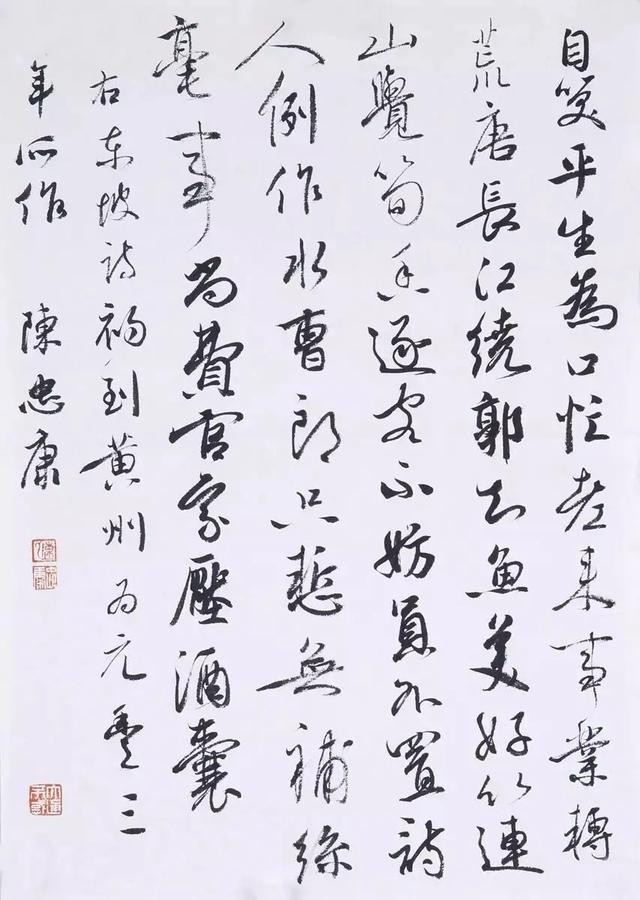 自笑平生為口忙老来事業轉
荒唐長江繞郭知魚美好竹連
山覺筍香逐客不妨員外置詩
人例作水曹郎只慙無補絲
毫事尚費官家壓酒囊
右东坡诗初到黄州为元豊三
年所作 陳忠康